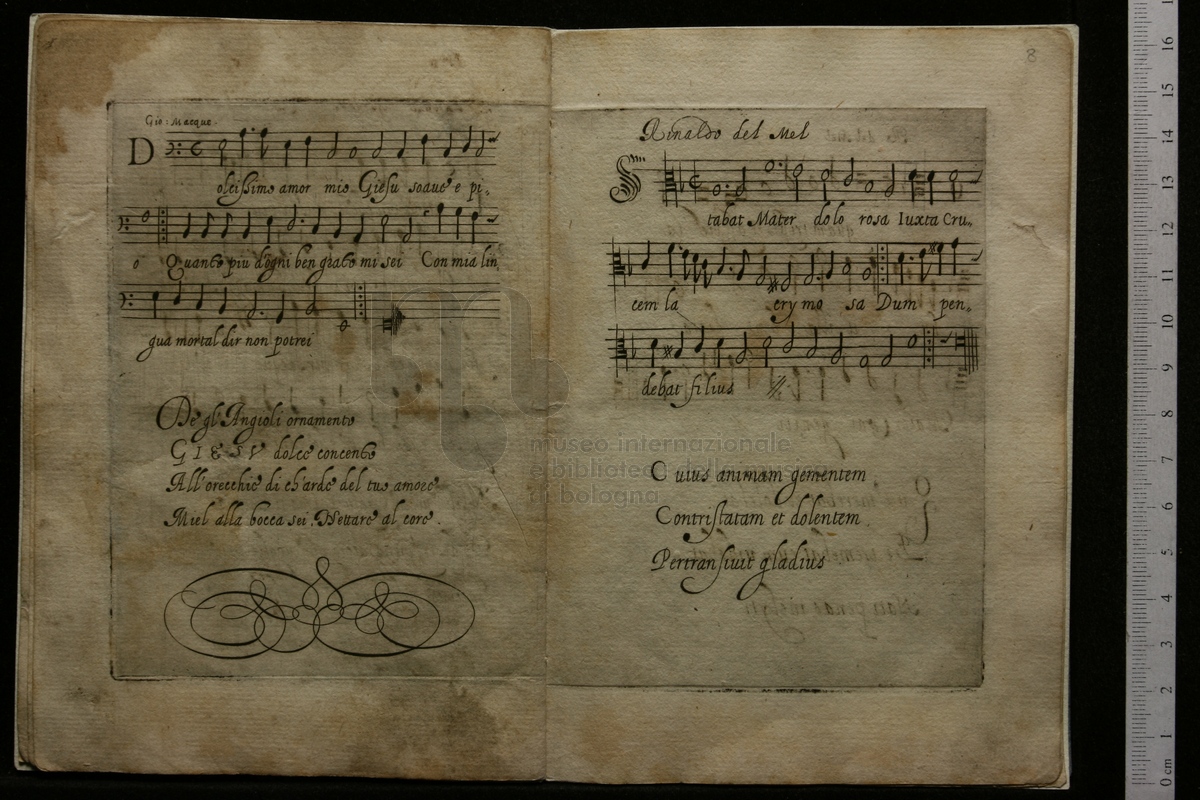 Gio: Macque.
D
olcissimo amor mio Giesu soaue e pi,
o Quanto più d'ogni ben grato mi sei Con mia lin
gua mortal dir non potrei
De gl'Angioli ornamento
GIESV dolce concento
All'orecchie di ch'arde del tuo amore
Miel alla bocca sei. Nettare al core.
8
Rinaldo del Mel
S
tabat Mater dolo rosa Iuxta Cru,
cem la crymo sa Dum pen,
debat filius
Cuius animam gementem
Contristatam et dolentem
Pertransiuit gladius
museo internazionale
e biblioteca
di bologna
0 cm 1 2 3 4 5 6 7 8 9 10 11 12 13 14 15 16